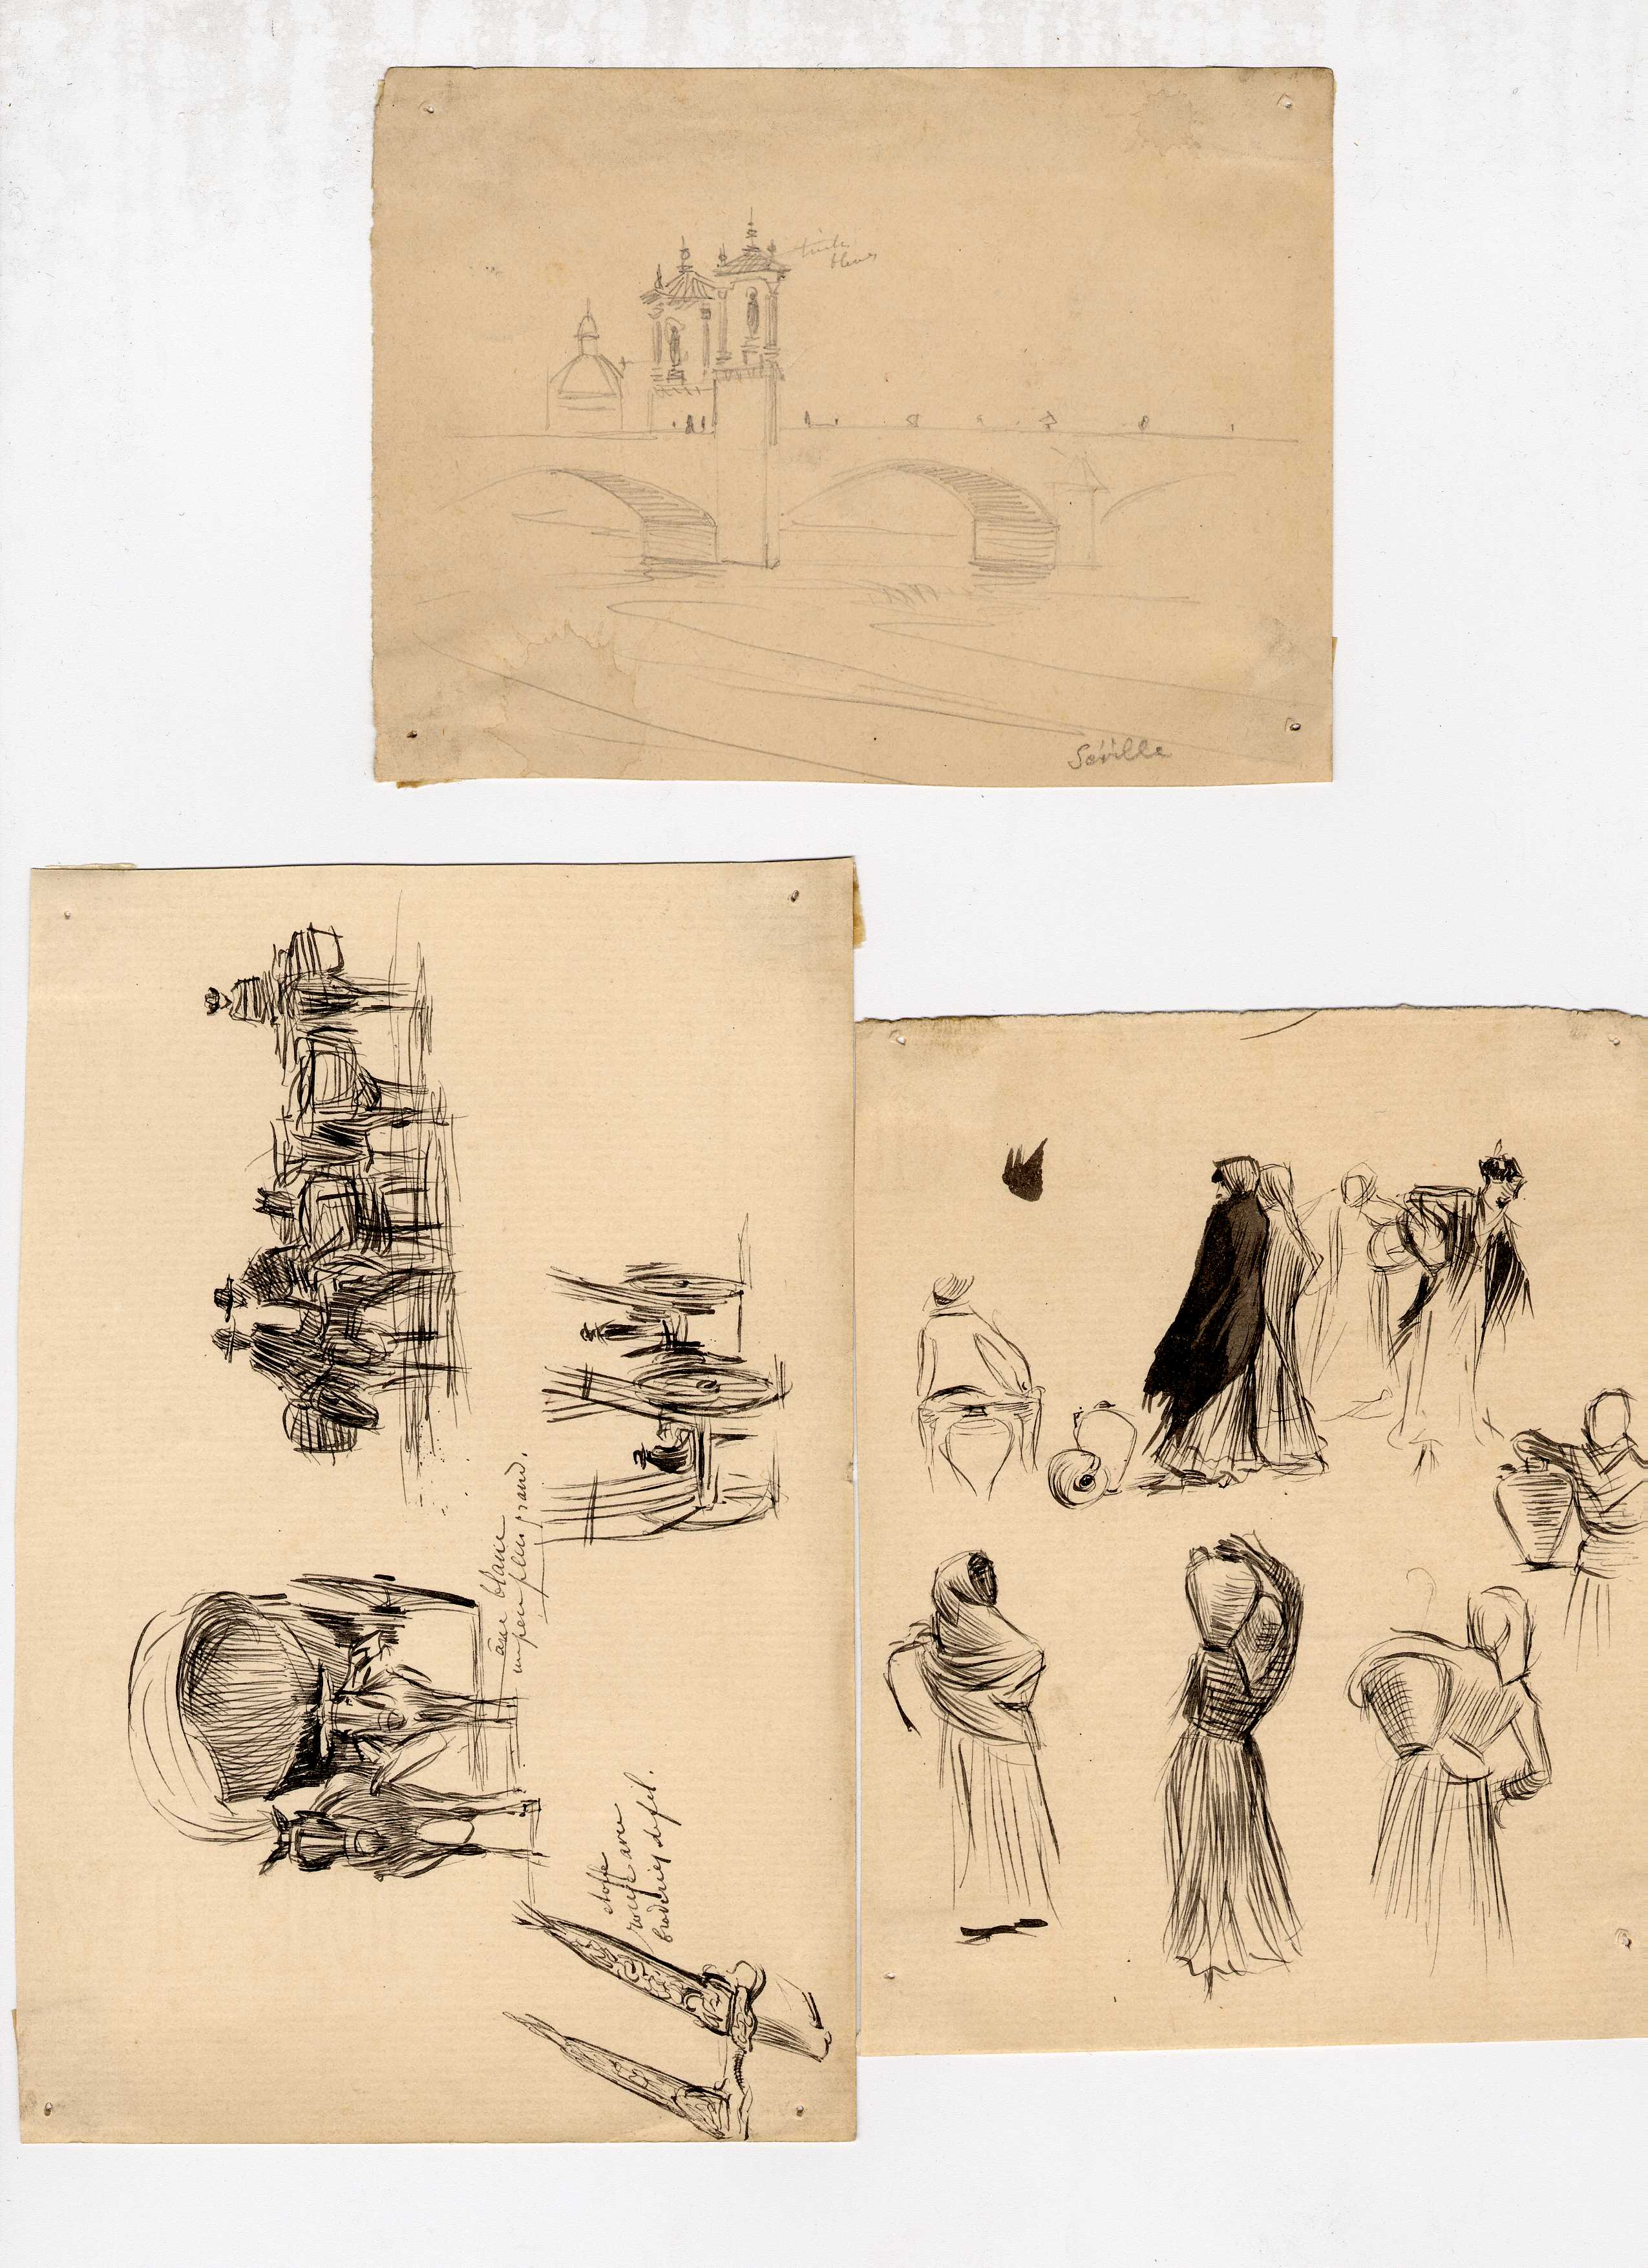 tuiles
bleues
Séville
âne blanc
un peu plus grand.
étoffe
rouge avec
broderies de fil.